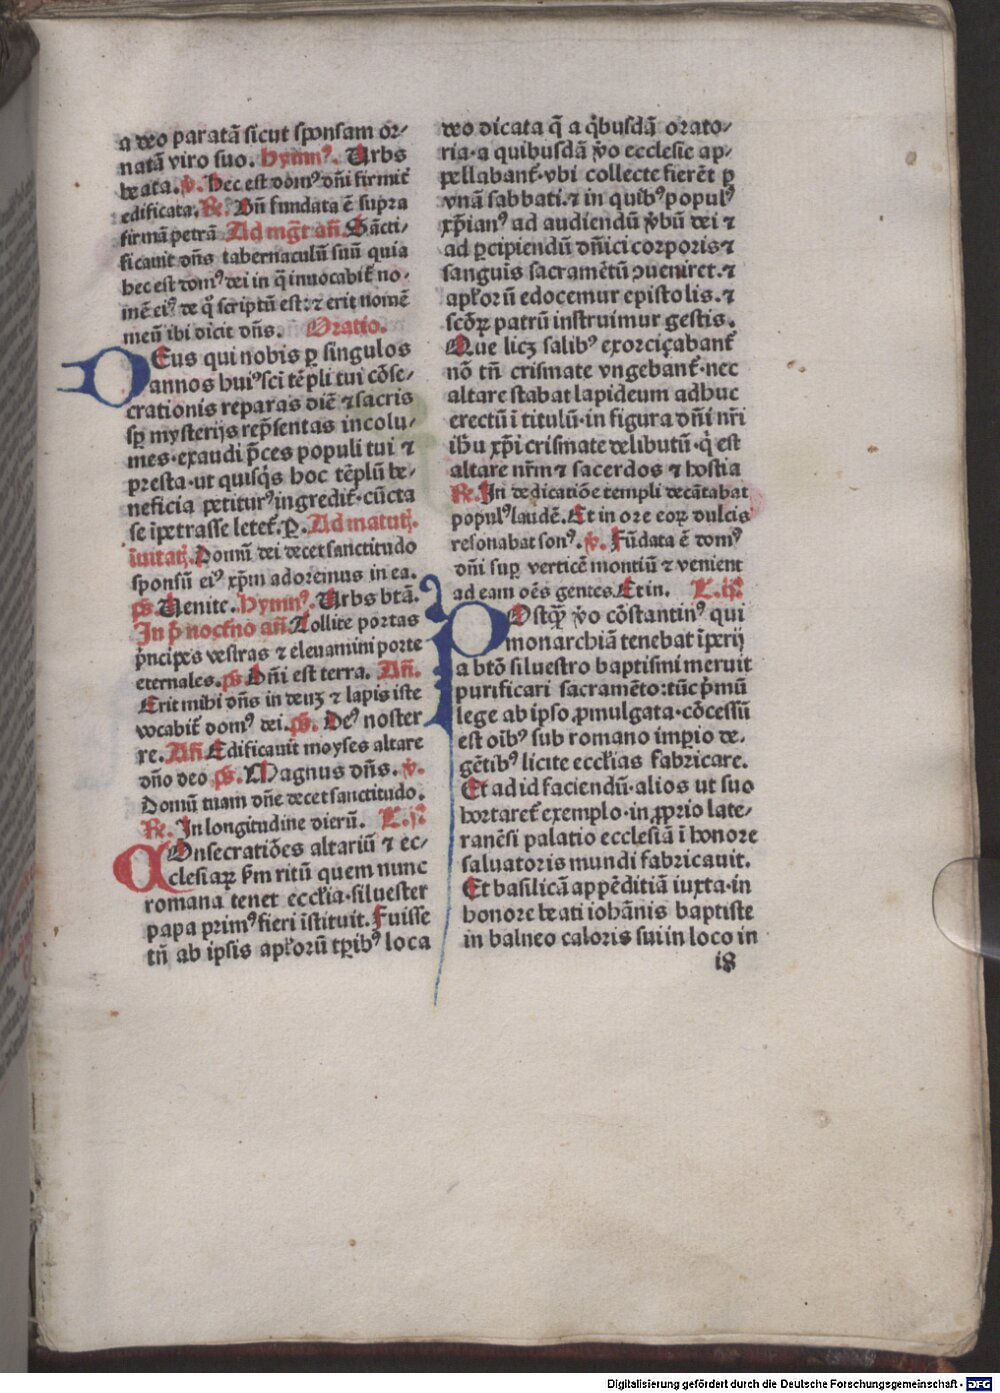 a deo paratā sicut sponsam or⸗
natā viro suo. hymnꝰ. Urbs
beata. ꝟ. hec est domꝰ dn̄i firmit̄
edificata. R̄e. Bn̄ fundata ē supra
firmā petrā Ad mgt̄ an̄. Sācti⸗
ficauit dn̄s tabernaculū suū quia
hec est domꝰ dei in q̄ inuocabit̄ no⸗
mē eiꝰ de qͦ scriptū est: ⁊ erit nomē
meū ibi dicit dn̄s. Oratio.
DEus qui nobis ꝑ singulos
annos huiꝰ scī tēpli tui cōse⸗
crationis reparas diē ⁊ sacris
sꝑ mysterijs rep̄sentas incolu⸗
mes· exaudi p̄ces populi tui ⁊
presta· ut quisqͥs hoc tēplū be⸗
neficia petiturꝰ ingredit̄· cūcta
se īpetrasse letet̄. Ꝑ. Ad matutꝭ.
īuitatꝭ. Domū dei decet sanctitudo
sponsū eiꝰ xp̄m adoremus in ea.
ps̄ Uenite. hymnꝰ. Urbs btā.
In pͥ noct̄no an̄. Tollite portas
pͥncipes vestras ⁊ eleuamini porte
eternales. ps̄ Dn̄i est terra. An̄.
Erit mihi dn̄s in deuꝫ ⁊ lapis iste
vocabit̄ domꝰ dei. ps̄. Deꝰ noster
re. An̄ Edificauit moyses altare
dn̄o deo ps̄. Magnus dn̄s. ꝟ.
Domū tuam dn̄e decet sanctitudo.
R̄e. In longitudine dierū. L. jᵃ
COnsecratiōes altariū ⁊ ec⸗
clesiaꝝ ẜm ritū quem nunc
romana tenet eccl̄ia· siluester
papa primꝰ fieri īstituit. Fuisse
tn̄ ab ipsis apl̄orū tꝑibꝰ loca
deo dicata q̄ a qͥbusdā orato⸗
ria· a quibusdā ꝟo ecclesie ap⸗
pellabant̄· vbi collecte fierēt ꝑ
vnā sabbati· ⁊ in quibꝰ populꝰ
xp̄ianꝰ ad audiendū ꝟbū dei ⁊
ad ꝑcipiendū dn̄ici corporis ⁊
sanguis sacramētū ꝯueniret· ⁊
apl̄orū edocemur epistolis· ⁊
scōꝝ patrū instruimur gestis.
Que licꝫ salibꝰ exorcizabant̄
nō tn̄ crismate vngebant̄· nec
altare stabat lapideum adhuc
erectū ī titulū· in figura dn̄i nr̄i
ihū xp̄i crismate delibutū· qͥ est
altare nr̄m ⁊ sacerdos ⁊ hostia
R̄e. In dedicatiōe templi decātabat
populꝰ laudē. Et in ore eoꝝ dulcis
resonabat sonꝰ. ꝟ. Fūdata ē domꝰ
dn̄i suꝑ verticē montiū ⁊ venient
ad eam oēs gentes. Et in. L. ijᵃ
POstqͣꝫ ꝟo cōstantinꝰ qui
monarchiā tenebat īperij
a btō siluestro baptismi meruit
purificari sacramēto: tūc pͥmū
lege ab ipso ꝓmulgata· cōcessū
est oībꝰ sub romano imperio de⸗
gētibꝰ licite eccl̄ias fabricare.
Et ad id faciendū· alios ut suo
hortaret̄ exemplo· in ꝓprio late⸗
ranēsi palatio ecclesiā ī honore
saluatoris mundi fabricauit.
Et basilicā appēditiā iuxta· in
honore beati iohānis baptiste
in balneo caloris sui in loco in
i8
Digitalisierung gefördert durch die Deutsche Forschungsgemeinschaft - DFG